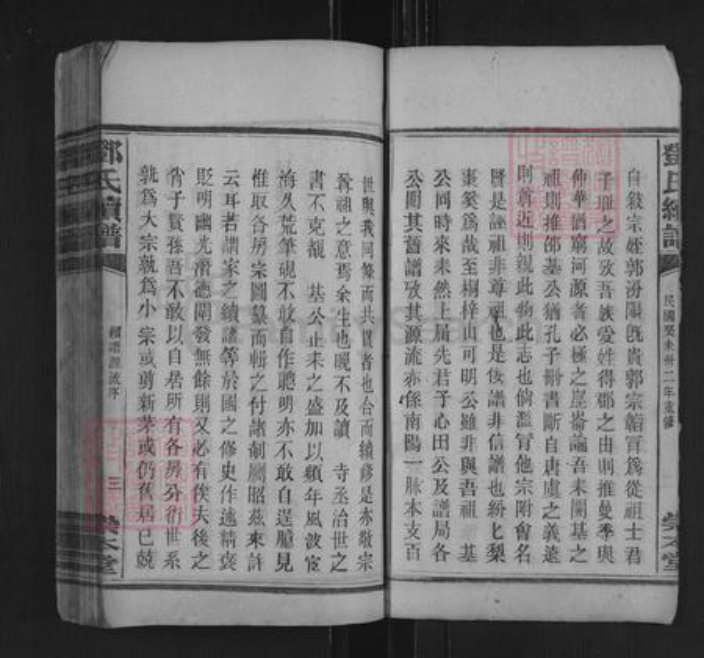 鄧氏續譜
民國癸未卅二年重修
崇本堂
自敍宗姪郭汾陽旣貴郭宗韜百爲從祖士君
子班之故攷吾族受姓得郡之由則推曼季與
仲華猶窮河源者必極之崑崙論吾來閩基之
祖則推邵基公猶孔子刪書斷自唐虞之義遠
則尊近則親此物此志也倘濫冒他宗附會名
賢是誣祖非尊祖也是佞譜非信譜也紛匕梨
棗奚爲哉至桐梓山可明公雖非與吾祖 基
公同時來未然上屆先君子心田公及譜局各
公閱其舊譜攷其源流亦係南陽一脉本支百
世與我同條而共貫者也合而續修是亦敬宗
尊祖之意焉余生也晚不及讀 寺丞治世之
書不克覩 基公止耒之盛加以頻年風波宦
海久荒筆硯不敢自作聰明亦不敢自逞臆見
惟取各房宗圖纂而輯之付諸剞劂昭茲來許
云耳若謂家之續譜等於國之修史作述精褒
貶明幽光潛德闡發無餘則又必有俟夫後之
肖子賢孫吾不敢以自居所有各房分衍世系
孰爲大宗孰爲小宗或剪新茅或仍舊居已兢
鄧氏續譜
續譜源流序
三
崇本堂
FamilySearch